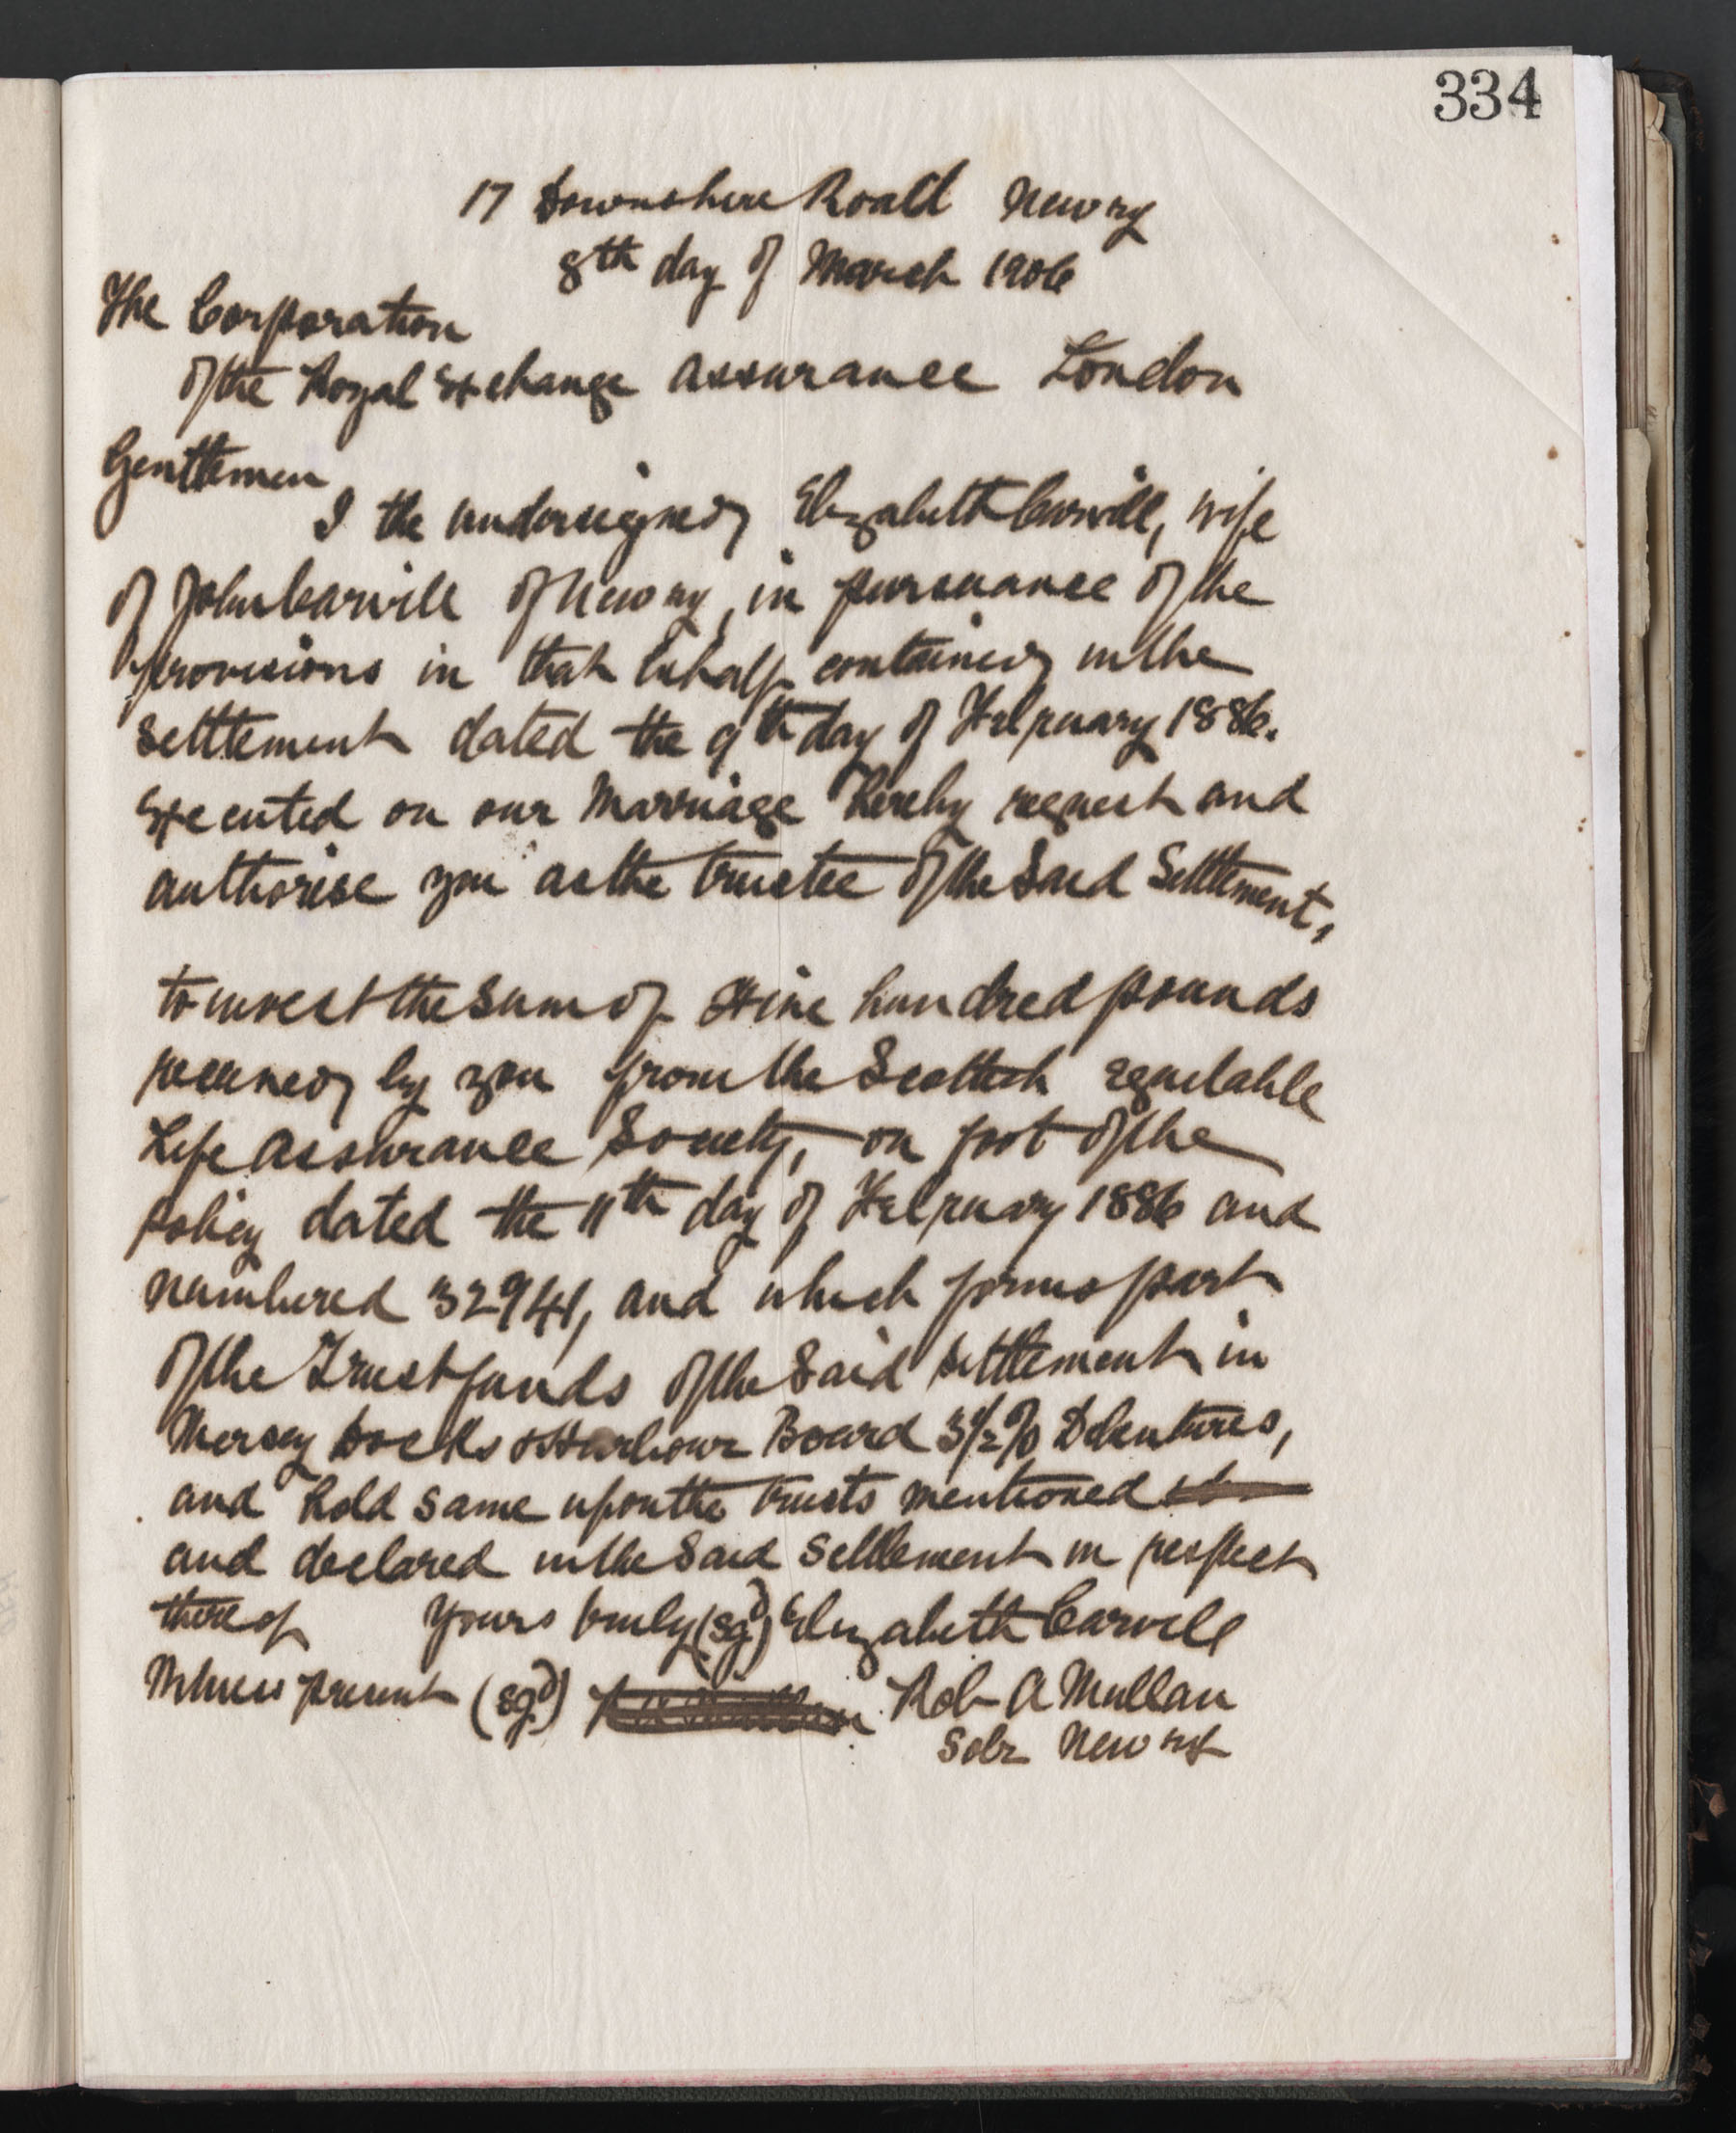 334
17 Downshire Road Newry
8th day of March 1906
The Corporation
of the Royal Exchange Assurance London
Gentlemen,
I the undersigned, Elizabeth Carvill, wife
of John Carvill of Newry, in pursuance of the
provisions in that behalf contained in the
settlement dated the 9th day of February 1886.
Executed on our Marriage hereby request and
authorise you as the trustee of the Said Settlement,
to invest the Sum of hundred pounds
received by you from the Scottish equitable
Life Assurance Society, on foot of the
policy dated the 11th day of February 1886 and
numbered 32941, and which forms part
of the Trust funds of the Said settlement in
Mersey Docks & Harbour Board 3½% Debentures,
and hold same upon the trusts mentioned
and declared in the Said Settlement in respect
thereof Yours truly (sgd) Elizabeth Carvill
Witness present (sgd) Rob A Mullan
Solr Newry